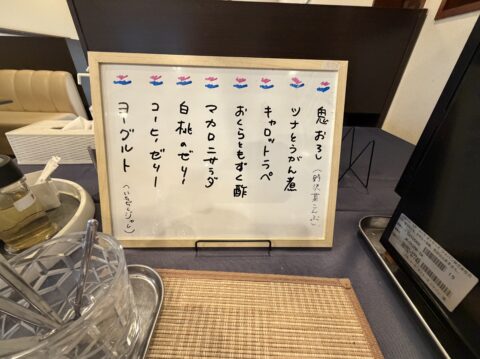 鬼おろし
(野沢菜こんぶ)
ツナとうがん煮
キャロットラペ
おくらともずく酢
マカロニサラダ
白桃のゼリー
コーヒーゼリー
ヨーグルト
(いちごじゃむ)